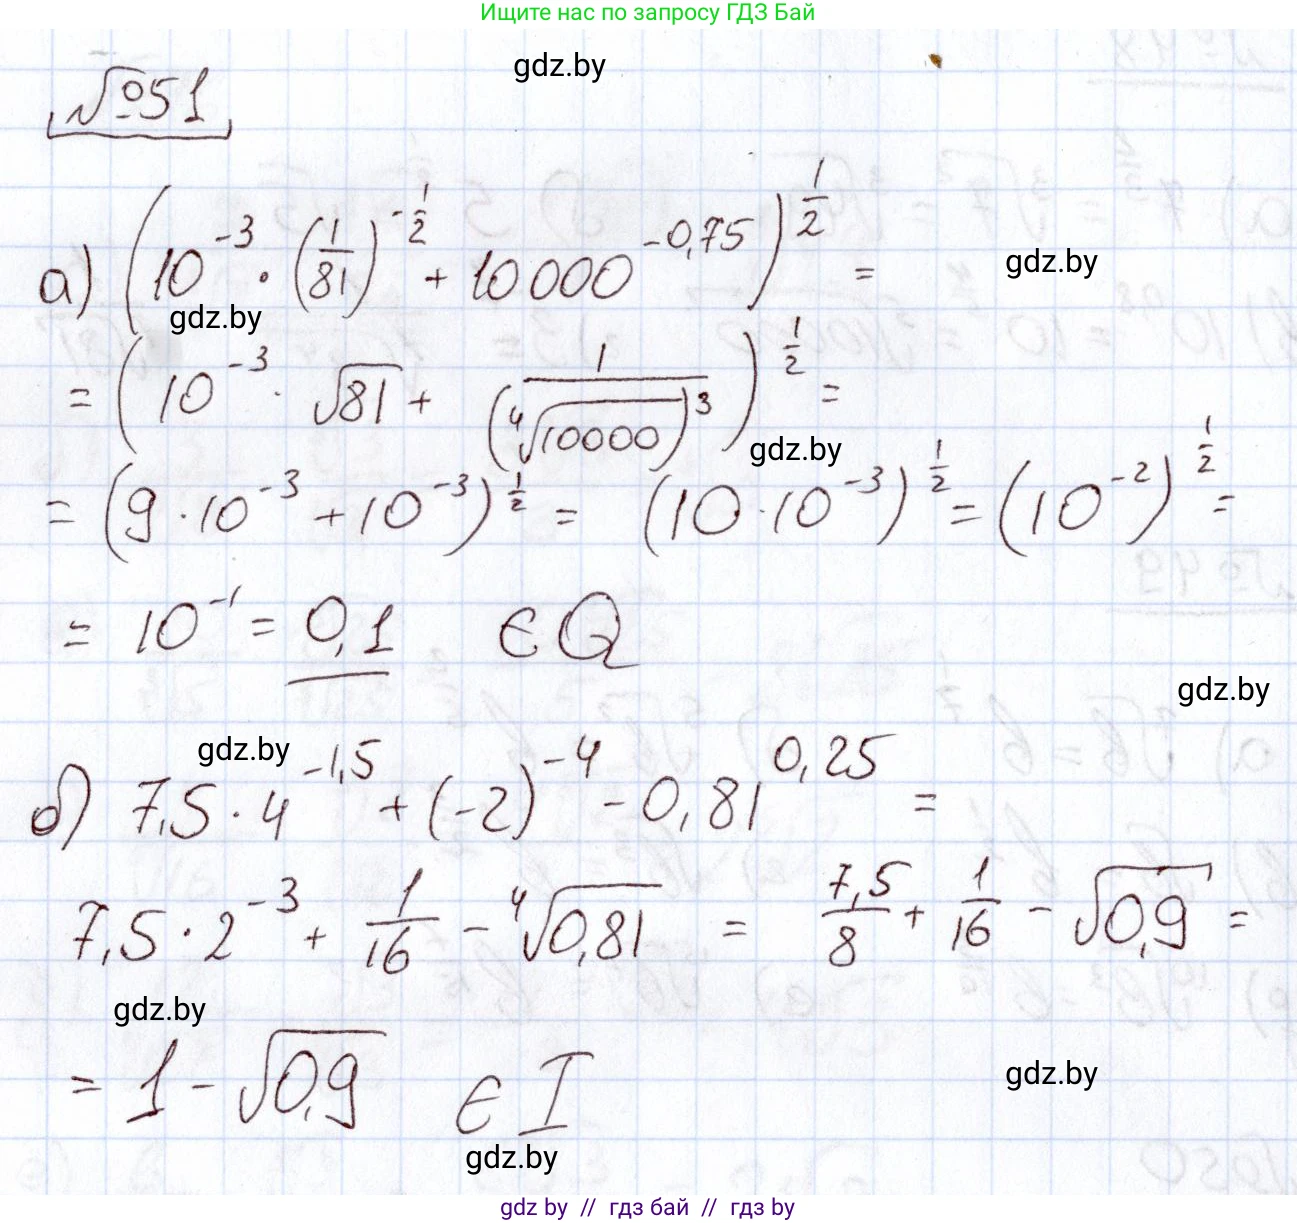 Ищите нас по запросу ГДЗ Бай
gdz.by
№51
а) (10^{-3} · (1/81)^{-1/2} + 10000^{-0,75})^{1/2} =
gdz.by
gdz.by
= (10^{-3} · √81 + 1/(⁴√10000)^3)^{1/2} =
gdz.by
= (9·10^{-3} + 10^{-3})^{1/2} = (10·10^{-3})^{1/2} = (10^{-2})^{1/2} =
= 10^{-1} = 0,1 ∈ Q
gdz.by
gdz.by
б) 7,5 · 4^{-1,5} + (-2)^{-4} - 0,81^{0,25} =
7,5 · 2^{-3} + 1/16 - ⁴√0,81 = 7,5/8 + 1/16 - √0,9 =
gdz.by
= 1 - √0,9 ∈ I
gdz.by
gdz.by
gdz by // гдз бай // гдз by